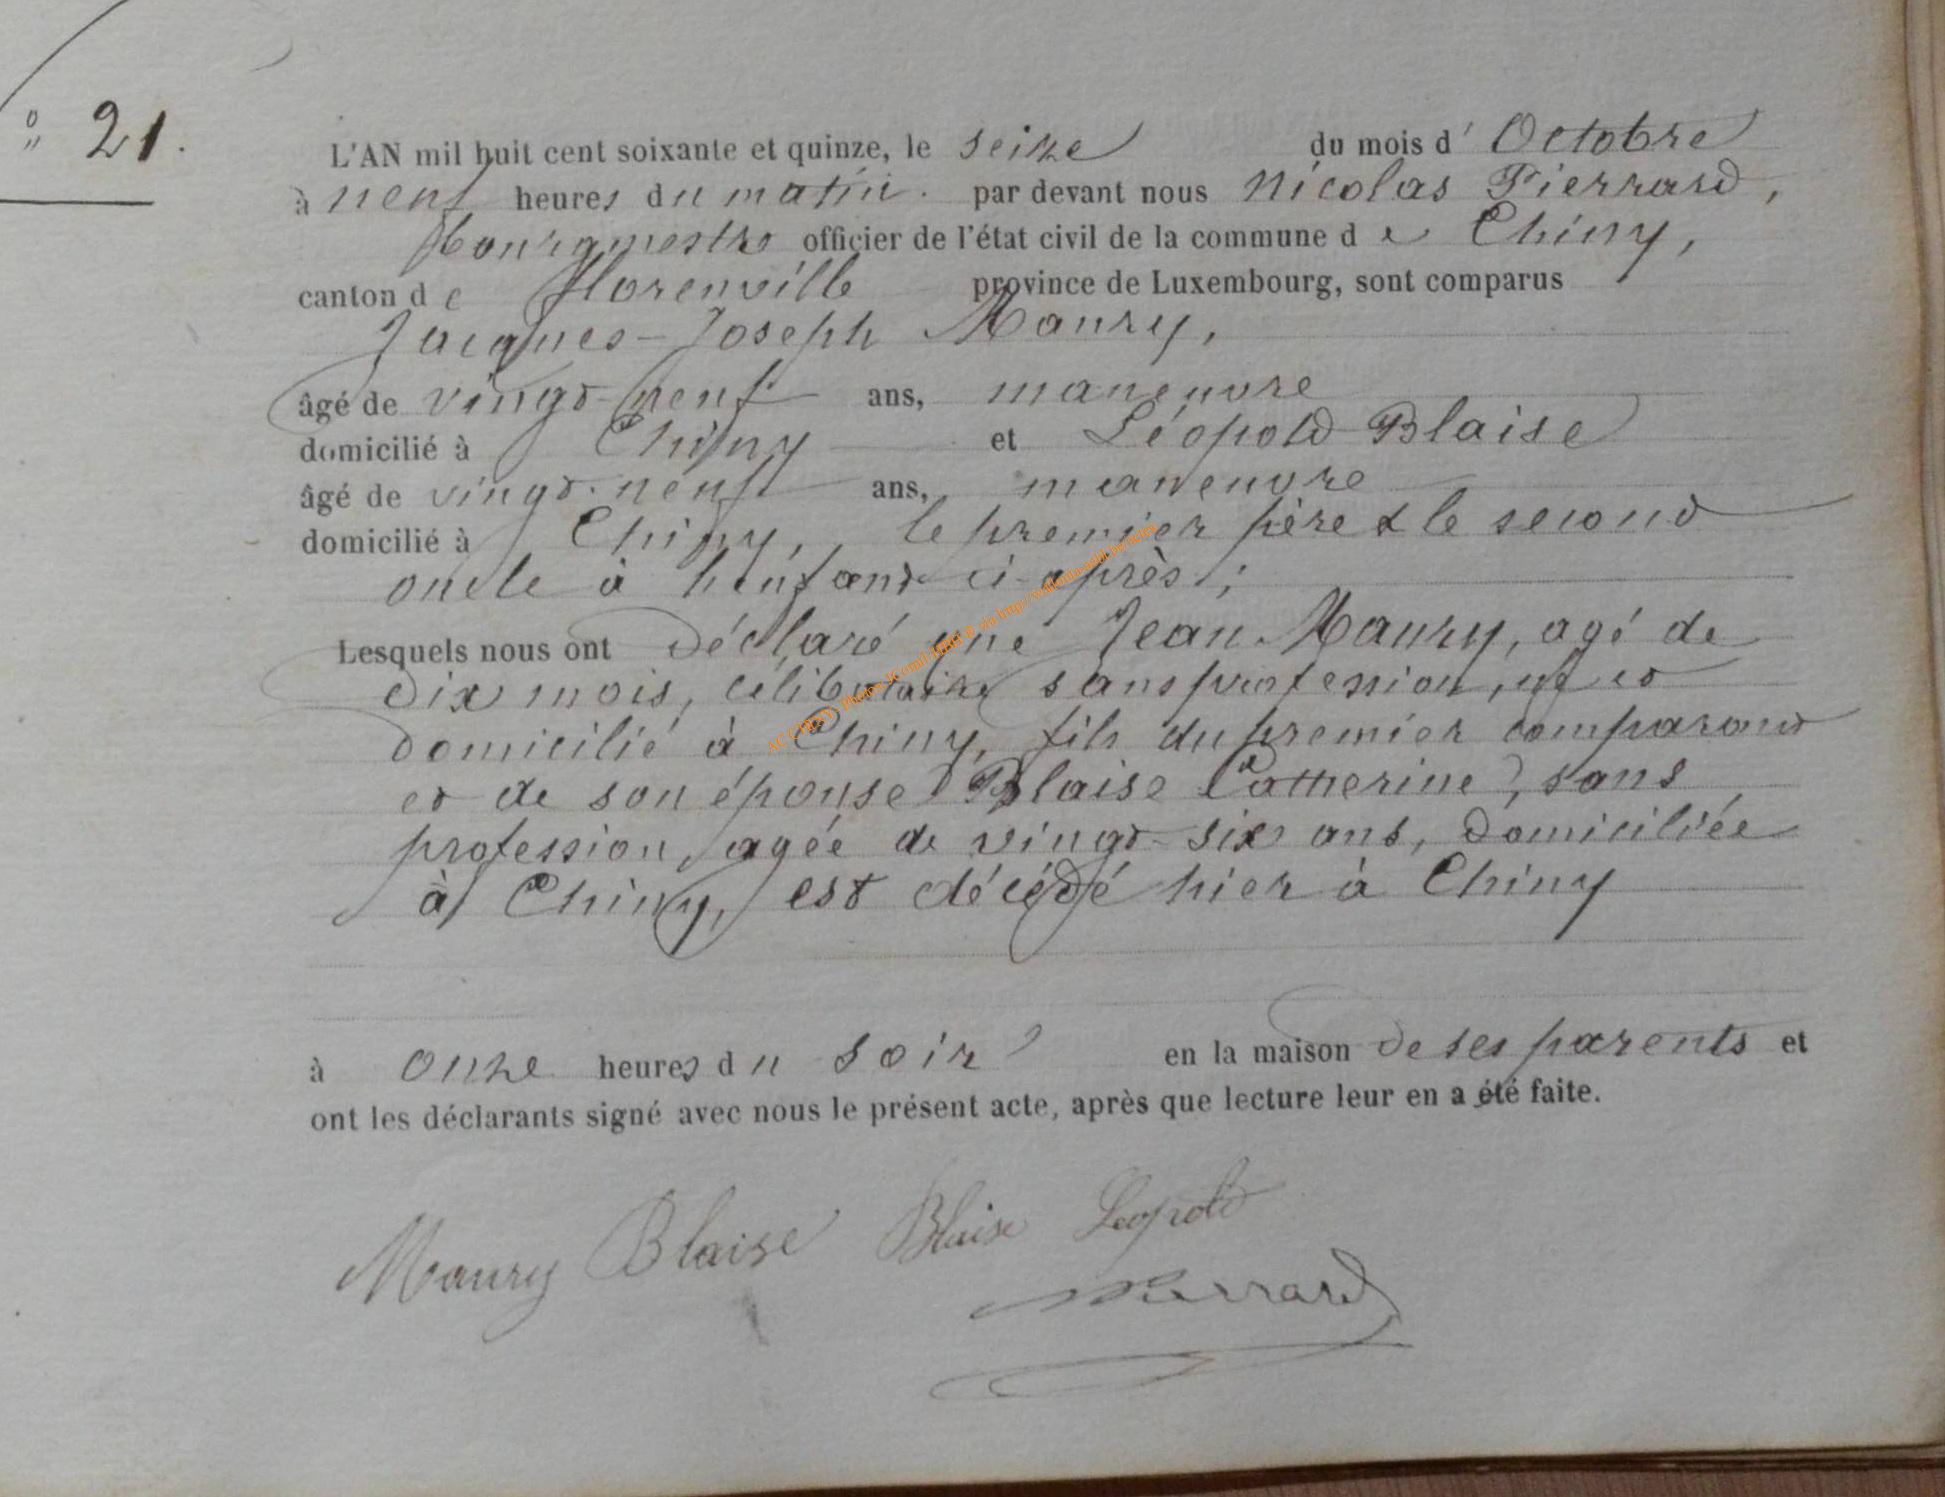 ° 21.
L'AN mil huit cent soixante et quinze, le seize du mois d'Octobre
à neuf heures du matin. par devant nous Nicolas Pierrard,
Bourgmestre officier de l'état civil de la commune de Chiny,
canton de Florenville province de Luxembourg, sont comparus
Jacques-Joseph Maury,
âgé de vingt-neuf ans, manœuvre
domicilié à Chiny et Léopold Blaise
âgé de vingt-neuf ans, manœuvre
domicilié à Chiny, le premier père & le second
oncle à l'enfant ci-après;
Lesquels nous ont déclaré que Jean Maury, agé de
dix mois, célibataire sans profession, né et
domicilié à Chiny, fils du premier comparant
et de son épouse Blaise Catherine, sans
profession, agée de vingt-six ans, domiciliée
à Chiny, est décédé hier à Chiny
à onze heures du soir en la maison de ses parents et
ont les déclarants signé avec nous le présent acte, après que lecture leur en a été faite.
Maury Blaise Blaise Leopold
Pierrard